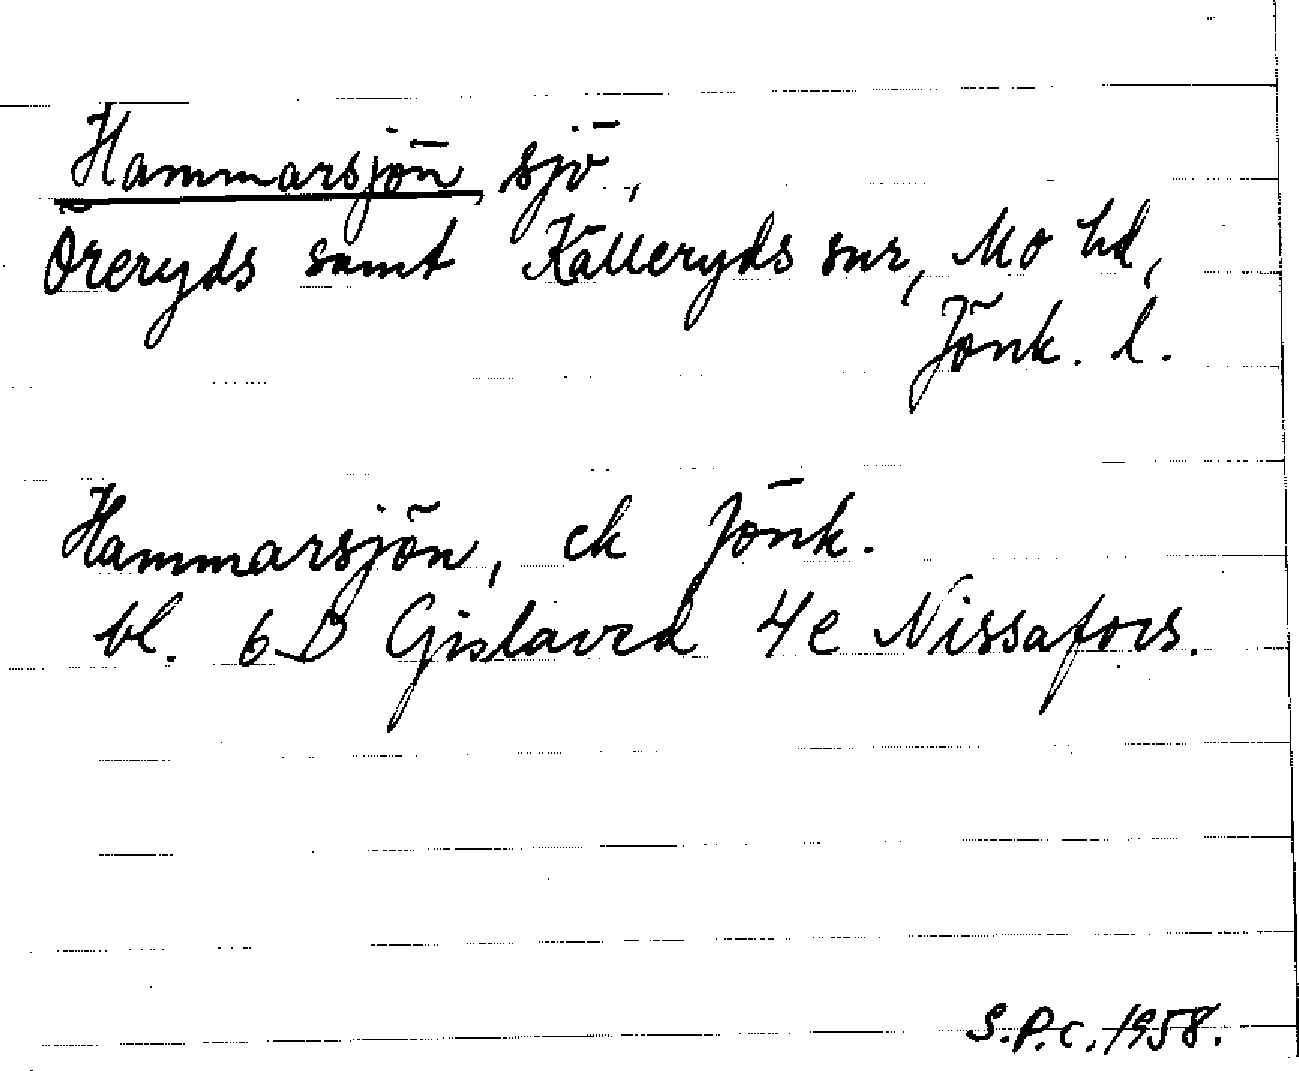 Hammarsjön, sjö,
Öreryds samt Källeryds snr, Mo hd,
Jönk. l.
Hammarsjön, ek Jönk.
bl. 6D Gislaved 4e Nissafors.
S.P.C. 1958.